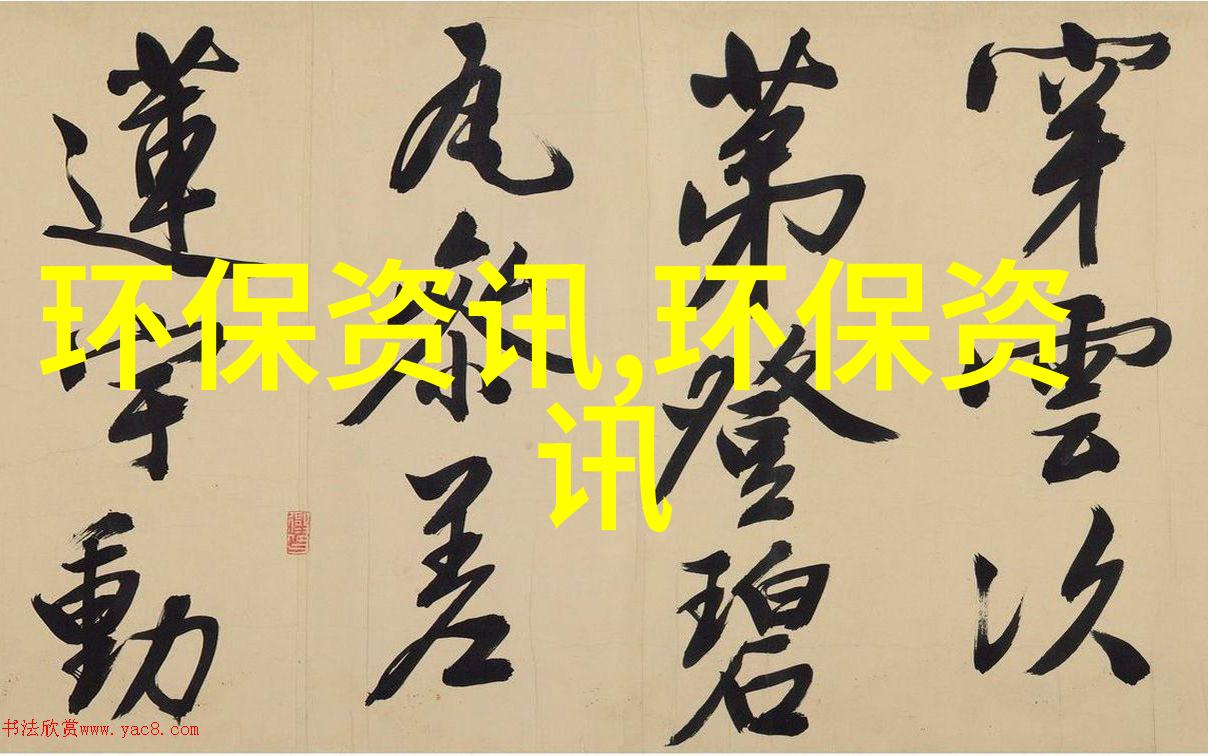 穿雲次
苐登碧
瓦叅差
蓮宇動
环保资讯,环保资
讯
书法欣赏www.yac8.com